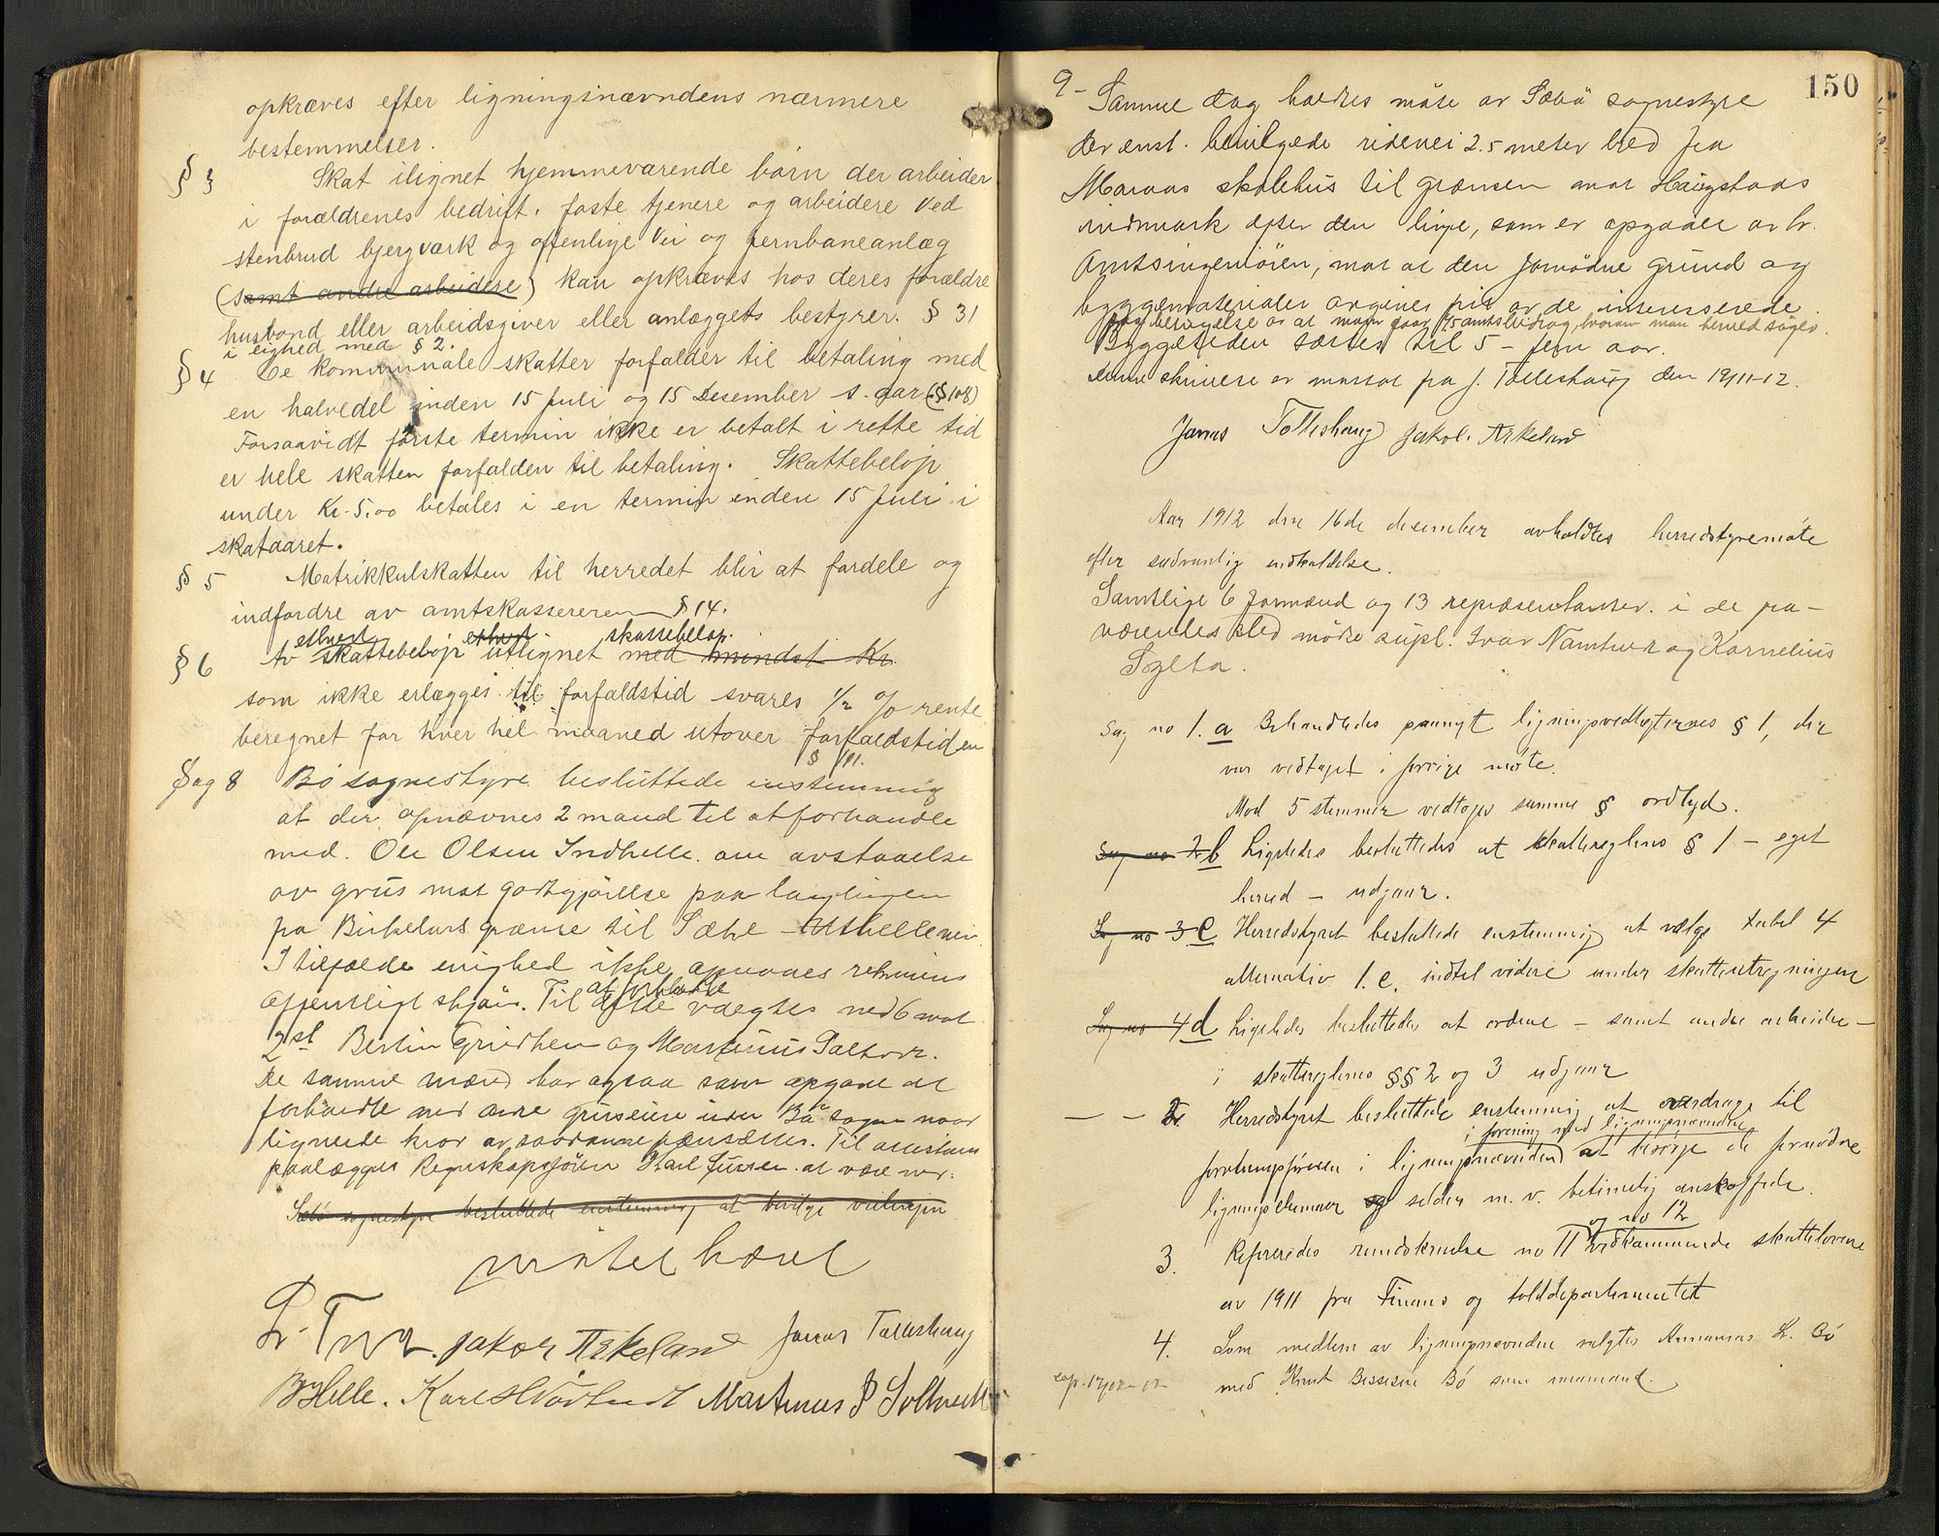 opkræves efter ligningsnævndens nærmere
bestemmelser.
§ 3 Skat ilignet hjemmeværende børn der arbeider
i forældrenes bedrift, faste tjenere og arbeidere ved
stenbrud bjergværk og offenlige vei og jernbaneanlæg
(samt andre arbeidere) kan opkræves hos deres forældre
husbond eller arbeidsgiver eller anlæggets bestyrer. § 31
i lighed med § 2.
§ 4 De kommunale skatter forfalder til betaling med
en halvedel inden 15 Juli og 15 Desember s. aar (§ 108)
Forsaavidt første termin ikke er betalt i rette tid
er hele skatten forfalden til betaling. Skattebeløp
under Kr. 5.00 betales i en termin inden 15 Juli i
skataaret.
§ 5 Matrikkulskatten til herredet blir at fordele og
indfordre av amtskassereren § 14.
ethvert ethvert skattebeløp.
§ 6 Av skattebeløp utlignet med mindst Kr.
som ikke erlægges til forfaldstid svares 1/2 % rente
beregnet for hver hel maaned utover forfaldstiden
§ 111.
Sag 8 Bø sognestyre besluttede enstemmig
at der opnævnes 2 mand til at forhandle
med. Ole Olsen Indhelle om avstaaelse
av grus mot godtgjørelse paa
pa Birkelands grænse til Sæbø - Uthelleveien
I tilfælde enighed ikke opnaaes rekvireres
offentligt skjøn. Til at forhandle
dette vælgtes med 6 mot
2 st Bertin Grindhem og Martinius
De samme mænd har ogsaa som opgave at
forhandle med andre gruseiere inden Bø sogn naar
lignende krav av saadanne fremsættes. Til assistans
paalægges Regnskapsfører Karl at være med.
Sæbø sognestyre besluttede enstemmig at bevilge
møtet hævet
Jakob Askeland Jonas Tolleshaug
B Helle. Karl Martinus P Soltvedt
150
9- Samme dag holdtes møte av Sæbø sognestyre
der enst. bevilgede ridevei 2.5 meter bred fra
Maraas skolehus til grænsen mot Haugstads
indmark efter den linje, som er opgaaet av hr.
Amtsingeniøren, mot at den fornødne grund og
byggematerialer avgives frit av de interesserede
betingelse er at man faar amtsbidrag, hvorom man herved søger.
Byggetiden sættes til 5 - fem aar.
Denne skrivelse er mottat fra J. Tolleshaug den 19/11-12.
Jonas Tolleshaug Jakob. Askeland
Aar 1912 den 16de desember avholdtes herredstyremøte
efter sedvanlig indkaldelse.
Samtlige 6 formænd og 13 repræsentanter. i de fra-
værendes sted møtte supl. Ivar Namtvedt og Kornelius
Sylta.
Sag no 1. a Behandledes paanyt ligningsvedtægternes § 1, der
var vedtaget i forrige møte.
Mod 5 stemmer vedtoges samme § ordlyd.
Sag no 2 b Ligeledes besluttedes at skattereglens § 1 - eget
herred - udgaar.
Sag no 3 c Herredstyret besluttede enstemmig at vælge tabel 4
alternativ 1. c. indtil videre under skatteutregningen
Sag no 4 d Ligeledes besluttedes at ordene - samt andre arbeidere -
i skattereglenes §§ 2 og 3 udgaar
- - 2 Herredstyret besluttede enstemmig at overdrage til
i forening med ligningsnævnden
forretningsføreren i ligningsnævnden at besørge de fornødne
ligningsskemaer og sedler m. v. betimelig anskaffede.
og no 12
3. Refereredes rundskrivelse no 11 vedkommende skattelovene
av 1911 fra Finans og tolddepartementet
4. Som medlem av ligningsnævnden valgtes Annanias L. Bø
med Knut Bø som varamand.